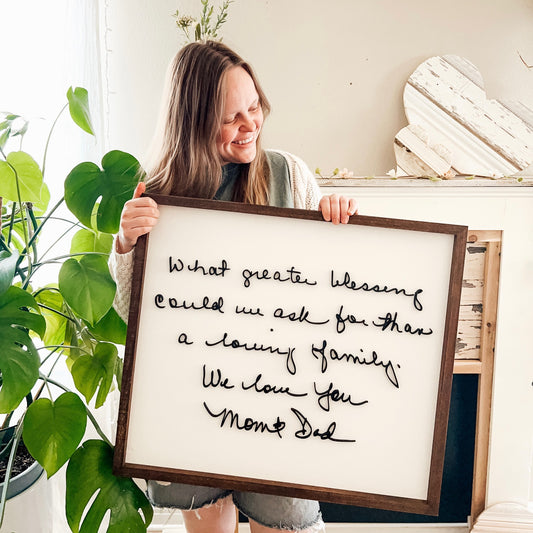 What greater blessing
could we ask for than
a loving family.
We love you
Mom & Dad